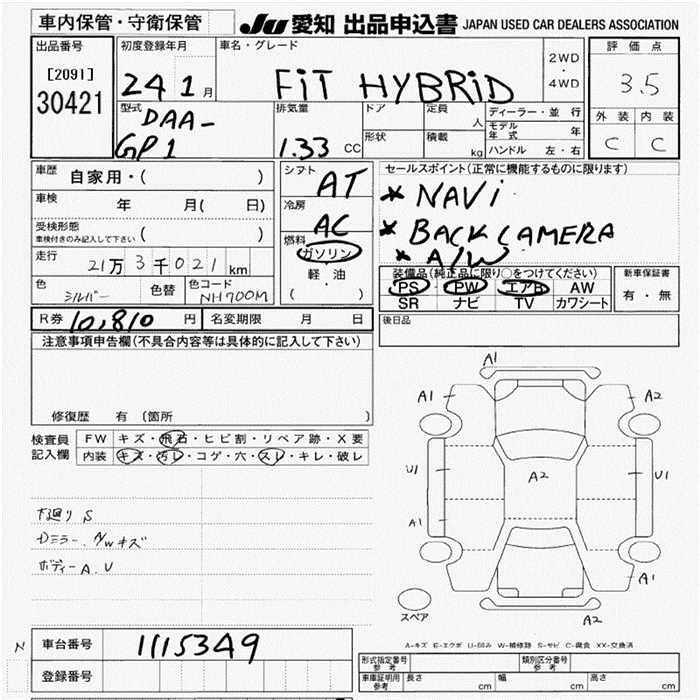 車内保管・守衛保管
JU 愛知 出品申込書 JAPAN USED CAR DEALERS ASSOCIATION
出品番号
[2091]
30421
初度登録年月
24 1 月
車名・グレード
FiT HYBRiD
2WD
・
4WD
評価点
3.5
外装 内装
C C
型式
DAA-
GP1
排気量
1.33 CC
ドア
形状
定員
人
積載
kg
ディーラー・並行
モデル年式 年
ハンドル 左・右
車歴 自家用・( )
車検 年 月( 日)
受検形態
車検付きのみ記入して下さい ( )
走行 21万3千021km
色 シルバー 色替 色コード NH700M
シフト AT
冷房 AC
燃料
ガソリン
・
軽・油
( )
セールスポイント(正常に機能するものに限ります)
* NAVi
* BACK CAMERA
* A/W
装備品(純正品に限り○をつけてください)
PS PW エアB AW
SR ナビ TV カワシート
新車保証書
有・無
R券 10,810 円 名変期限 月 日
後日品
注意事項申告欄(不具合内容等は具体的に記入して下さい)
修復歴 有 (箇所 )
検査員
記入欄
FW キズ・飛石・ヒビ割・リペア跡・X要
内装 キズ・汚レ・コゲ・穴・スレ・キレ・破レ
下廻り S
Dミラー、A/Wキズ
ボディー A.U
A1
A1 A2
U1 A2 U1
A1
A1
A2
スペア
A-キズ E-エクボ U-凹み W-補修跡 S-サビ C-腐食 XX-交換済
N
車台番号 1115349
登録番号
形式指定番号
参考
類別区分番号
参考
車庫証明用
参考
長さ cm 幅 cm 高さ cm